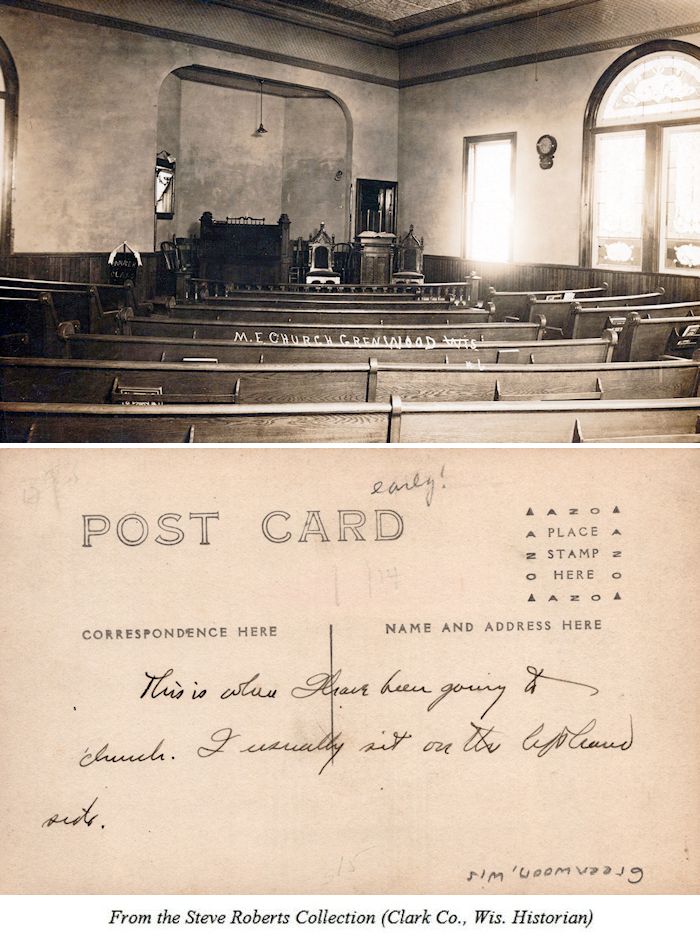 M.E CHURCH GRENWOOD WIS.
early!
POST CARD
AZO
PLACE
STAMP
HERE
AZO
CORRESPONDENCE HERE
NAME AND ADDRESS HERE
This is where I have been going to
church. I usually sit on the left hand
side.
15
Greenwood, Wis
From the Steve Roberts Collection (Clark Co., Wis. Historian)